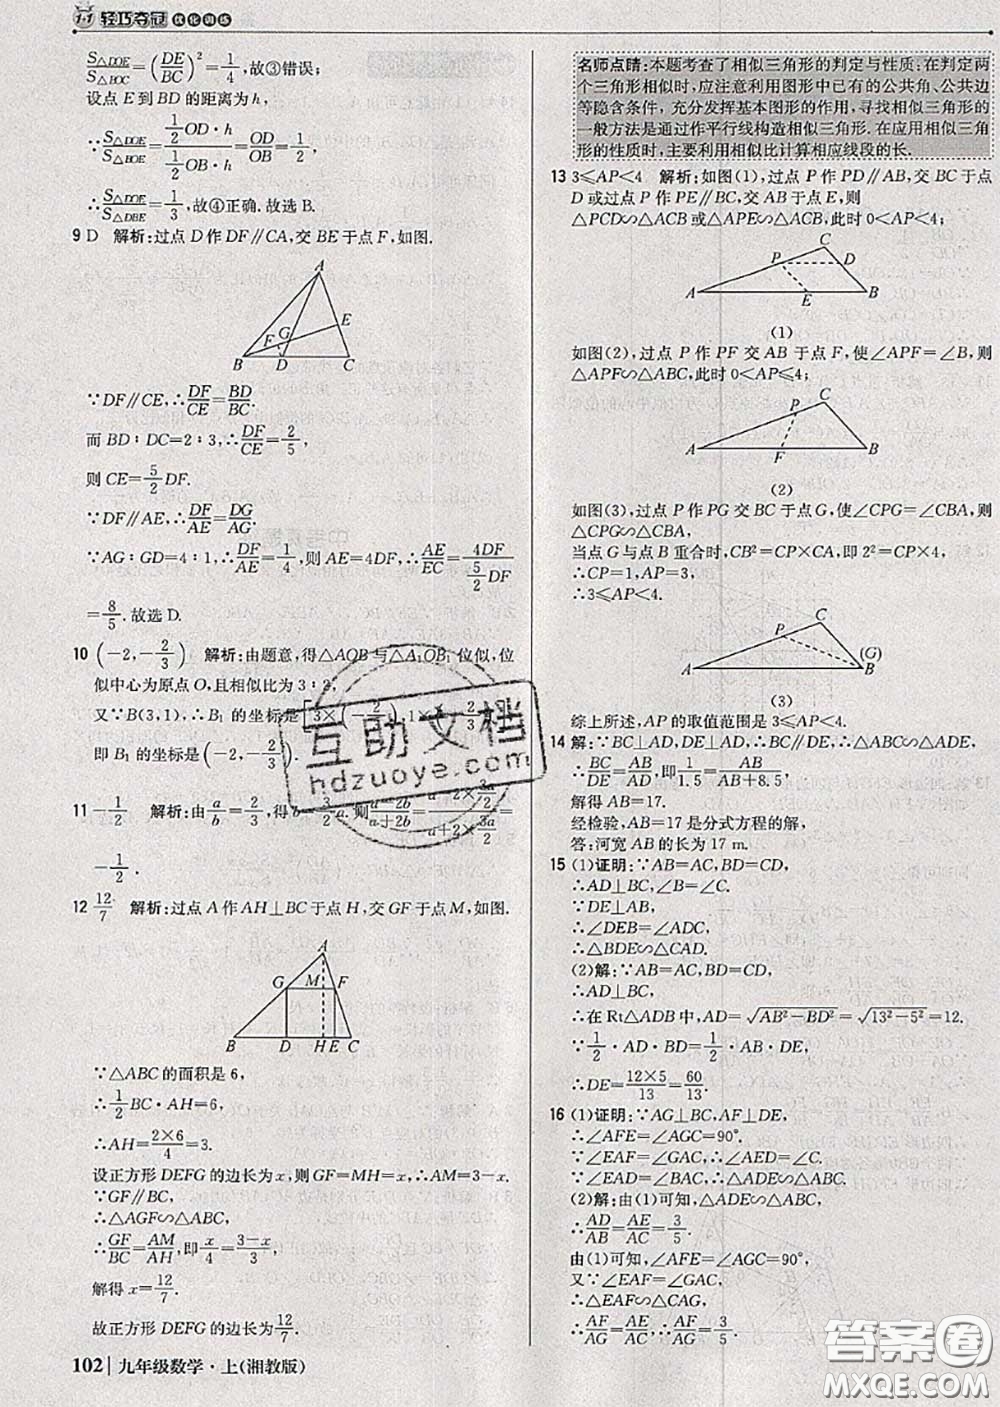 1+1 轻巧夺冠 优化训练
S△DOE/S△BOC=(DE/BC)²=1/4,故③错误;
设点 E 到 BD 的距离为 h,
∵S△DOE/S△DBE=(1/2 OD·h)/(1/2 OB·h)=OD/OB=1/2,
∴S△DOE/S△DBE=1/3,故④正确.故选 B.
9 D 解析:过点 D 作 DF∥CA,交 BE 于点 F,如图.
A
E
F G
B D C
∵DF∥CE,∴DF/CE=BD/BC.
而 BD∶DC=2∶3,∴DF/CE=2/5,
则 CE=5/2 DF.
∵DF∥AE,∴DF/AE=DG/AG.
∵AG∶GD=4∶1,∴DF/AE=1/4,则 AE=4DF,∴AE/EC=4DF/(5/2 DF)
=8/5.故选 D.
10 (-2,-2/3) 解析:由题意,得△AOB 与△A₁OB₁ 位似,位
似中心为原点 O,且相似比为 3∶2,
又∵B(3,1),∴B₁ 的坐标是
即 B₁ 的坐标是(-2,-2/3).
11 -1/2 解析:由a/b=2/3,得b=3/2 a.则(a-2b)/(a+2b)=(a-2×3a/2)/(a+2×3a/2)=
-1/2.
12 12/7 解析:过点 A 作 AH⊥BC 于点 H,交 GF 于点 M,如图.
A
G M F
B D H E C
∵△ABC 的面积是 6,
∴1/2 BC·AH=6,
∴AH=(2×6)/4=3.
设正方形 DEFG 的边长为 x,则 GF=MH=x,∴AM=3-x.
∵GF∥BC,
∴△AGF∽△ABC,
∴GF/BC=AM/AH,即x/4=(3-x)/3,
解得 x=12/7.
故正方形 DEFG 的边长为12/7.
102 九年级数学·上(湘教版)
名师点睛:本题考查了相似三角形的判定与性质:在判定两
个三角形相似时,应注意利用图形中已有的公共角、公共边
等隐含条件,充分发挥基本图形的作用,寻找相似三角形的
一般方法是通过作平行线构造相似三角形.在应用相似三角
形的性质时,主要利用相似比计算相应线段的长.
13 3≤AP<4 解析:如图(1),过点 P 作 PD∥AB,交 BC 于点
D 或过点 P 作 PE∥BC,交 AB 于点 E,则
△PCD∽△ACB 或△APE∽△ACB,此时 0<AP<4;
C
P D
A E B
(1)
如图(2),过点 P 作 PF 交 AB 于点 F,使∠APF=∠B,则
△APF∽△ABC,此时 0<AP≤4;
C
P
A F B
(2)
如图(3),过点 P 作 PG 交 BC 于点 G,使∠CPG=∠CBA,则
△CPG∽△CBA,
当点 G 与点 B 重合时,CB²=CP×CA,即 2²=CP×4,
∴CP=1,AP=3,
∴3≤AP<4.
C
P (G)
A B
(3)
综上所述,AP 的取值范围是 3≤AP<4.
14 解:∵BC⊥AD,DE⊥AD,∴BC∥DE,∴△ABC∽△ADE,
∴BC/DE=AB/AD,即1/1.5=AB/(AB+8.5),
解得 AB=17.
经检验,AB=17 是分式方程的解,
答:河宽 AB 的长为 17 m.
15 (1)证明:∵AB=AC,BD=CD,
∴AD⊥BC,∠B=∠C.
∵DE⊥AB,
∴∠DEB=∠ADC,
∴△BDE∽△CAD.
(2)解:∵AB=AC,BD=CD,
∴AD⊥BC,
∴在 Rt△ADB 中,AD=√(AB²-BD²)=√(13²-5²)=12.
∵1/2·AD·BD=1/2·AB·DE,
∴DE=(12×5)/13=60/13.
16 (1)证明:∵AG⊥BC,AF⊥DE,
∴∠AFE=∠AGC=90°.
∵∠EAF=∠GAC,∴∠AED=∠C.
∵∠EAD=∠BAC,∴△ADE∽△ABC.
(2)解:由(1)可知,△ADE∽△ABC,
∴AD/AB=AE/AC=3/5.
由(1)可知,∠AFE=∠AGC=90°,
又∵∠EAF=∠GAC,
∴△EAF∽△CAG,
∴AF/AG=AE/AC,∴AF/AG=3/5.
互助文档
hdzuoye.com
答案圈
MXQE.COM